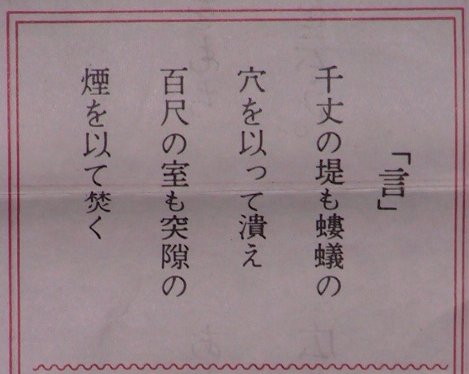 「言」
千丈の堤も螻蟻の
穴を以って潰え
百尺の室も突隙の
煙を以て焚く